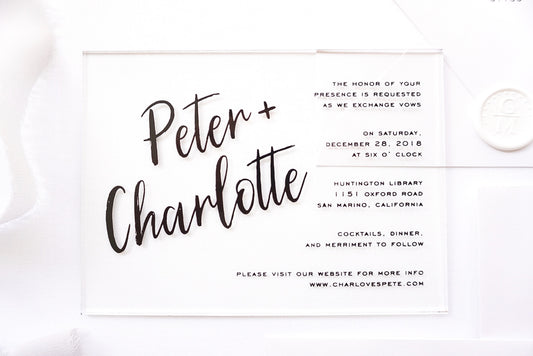 Peter +
Charlotte
THE HONOR OF YOUR
PRESENCE IS REQUESTED
AS WE EXCHANGE VOWS
ON SATURDAY,
DECEMBER 28, 2018
AT SIX O' CLOCK
HUNTINGTON LIBRARY
1151 OXFORD ROAD
SAN MARINO, CALIFORNIA
COCKTAILS, DINNER,
AND MERRIMENT TO FOLLOW
PLEASE VISIT OUR WEBSITE FOR MORE INFO
WWW.CHARLOVESPETE.COM